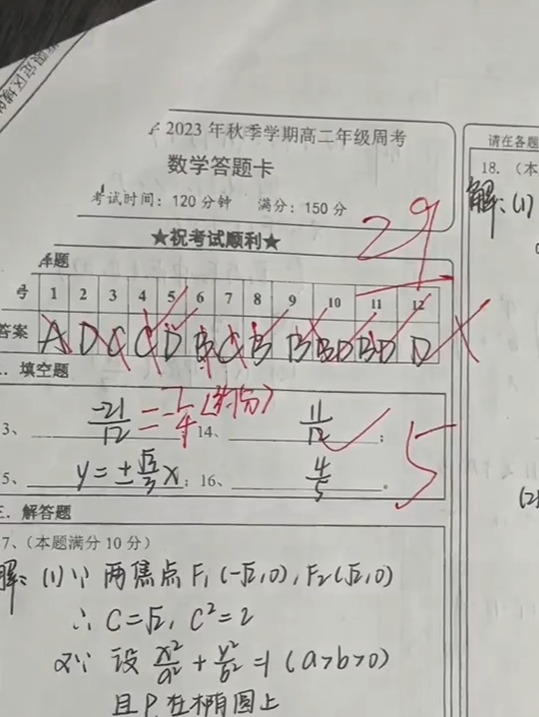 2023 年秋季学期高二年级周考
数学答题卡
考试时间：120 分钟 满分：150 分
29
★祝考试顺利★
择题
号 1 2 3 4 5 6 7 8 9 10 11 12
答案 A D C C D B C B B BD BD D
填空题
3、 -21/12 = -7/4 (约分) 14、 11/12 ;
5
5、 y=±√3/3 x ; 16、 4/5 。
三．解答题
7、（本题满分 10 分）
解：(1)∵ 两焦点 F₁(-√2,0), F₂(√2,0)
∴ C=√2, C²=2
又∵ 设 x²/a² + y²/b² =1 (a>b>0)
且P在椭圆上
请在各题
18. （本
解：(1)
(2)